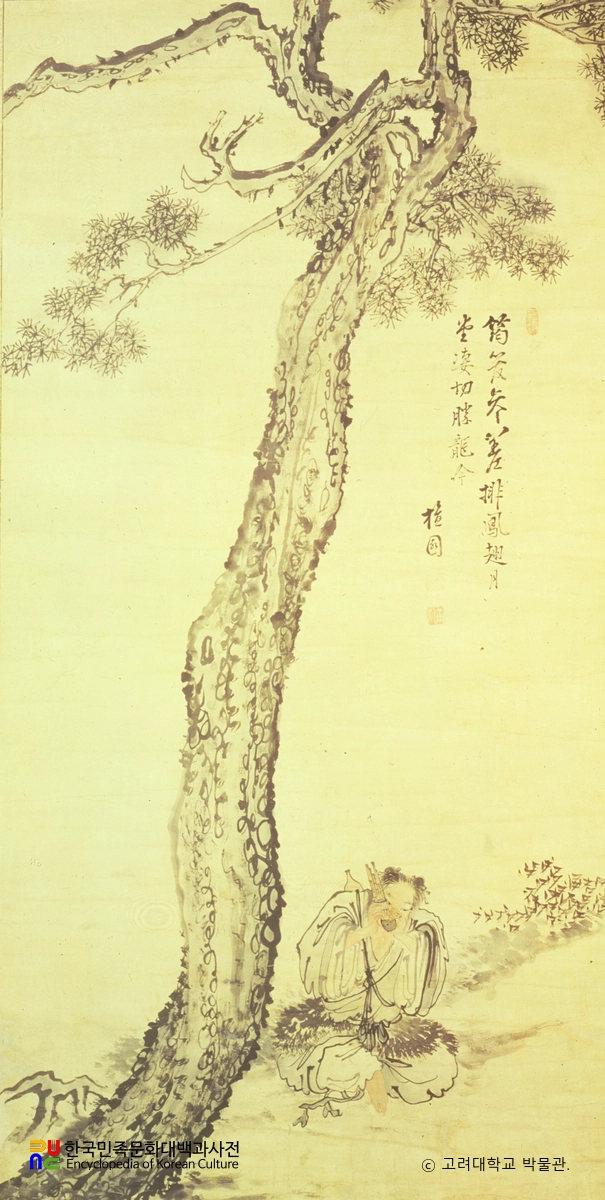 筠管參差排鳳翅月
堂凄切勝龍吟
檀園
한국민족문화대백과사전
Encyclopedia of Korean Culture
© 고려대학교 박물관.